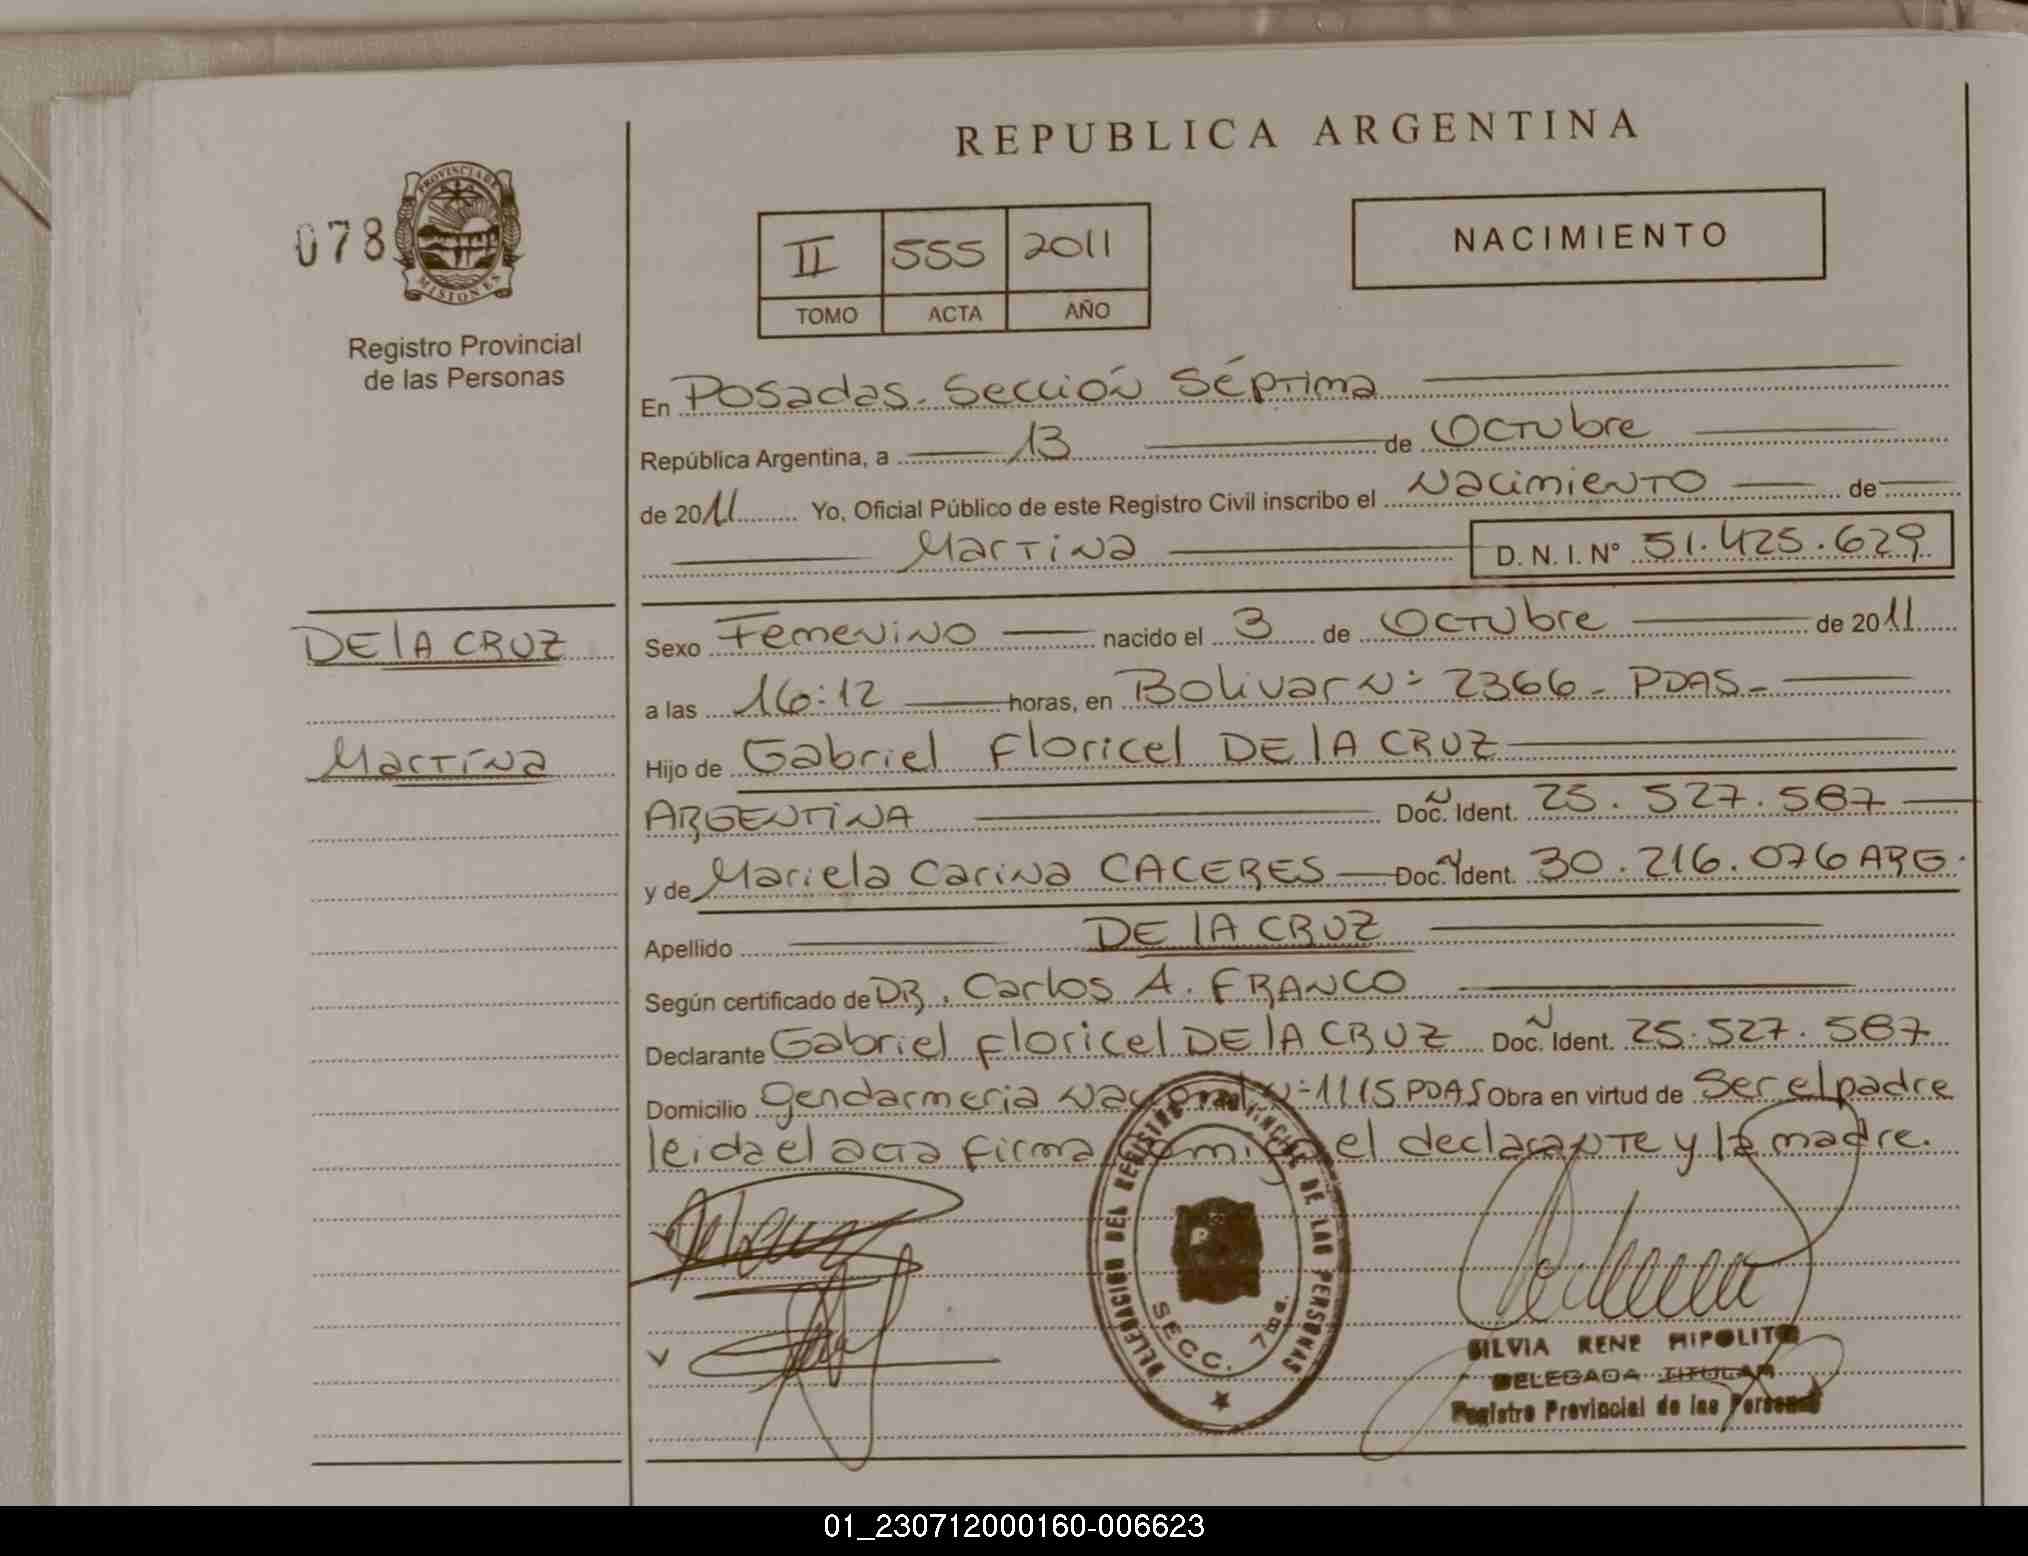 REPUBLICA ARGENTINA
078
PROVINCIA DE
MISIONES
Registro Provincial
de las Personas
II 555 2011
TOMO ACTA AÑO
NACIMIENTO
En Posadas. Sección Séptima
República Argentina, a 13 de Octubre
de 2011 Yo, Oficial Público de este Registro Civil inscribo el Nacimiento de
Martina D. N. I. Nº 51.425.629
DE lA CRUZ
Martina
Sexo Femenino nacido el 3 de Octubre de 2011
a las 16:12 horas, en Bolivar Nº 2366 - PDAS -
Hijo de Gabriel Floricel DE lA CRUZ
ARGENTINA Doc. N Ident. 25.527.587
y de Mariela Carina CACERES Doc. N Ident. 30.216.076 ARG.
Apellido DE lA CRUZ
Según certificado de DR. Carlos A. FRANCO
Declarante Gabriel Floricel DE lA CRUZ Doc. N Ident. 25.527.587
Domicilio Gendarmeria Nacional Nº 1115 PDAS Obra en virtud de Ser el padre
leida el acta firma conmigo el declarante y la madre.
DELEGACION DEL REGISTRO PROVINCIAL DE LAS PERSONAS
SECC. 7ma.
SILVIA RENE HIPOLITO
DELEGADA TITULAR
Registro Provincial de las Personas
01_230712000160-006623